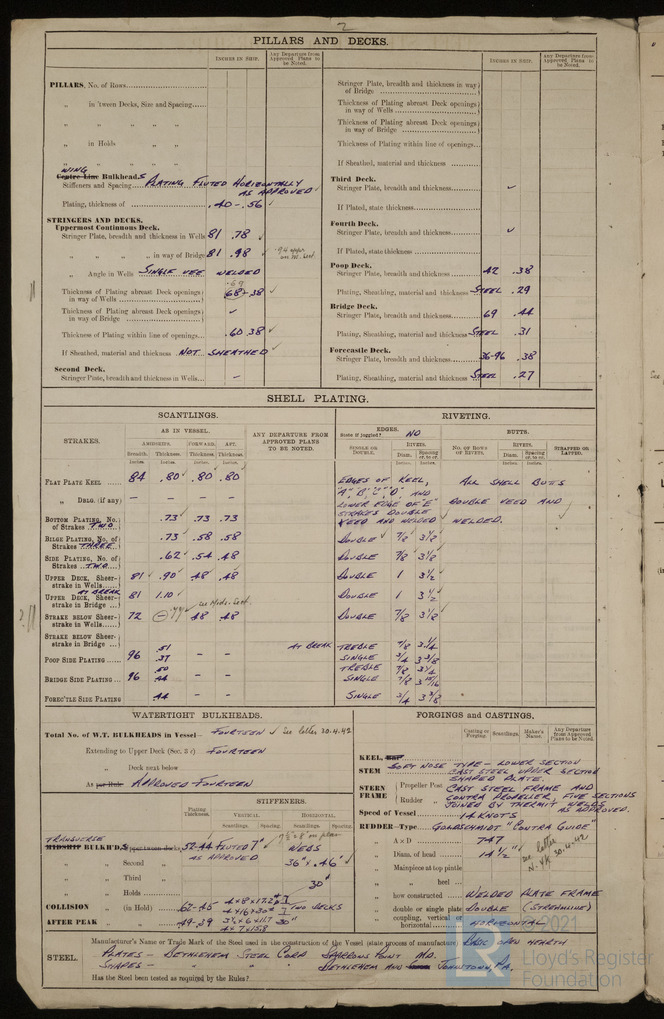 2
PILLARS AND DECKS.
INCHES IN SHIP.
Any Departure from Approved Plans to be Noted.
PILLARS, No. of Rows
„ in 'tween Decks, Size and Spacing
„ „ „ „
„ in Holds „ „
„ „ „ „
WING
Centre Line Bulkheads
Stiffeners and Spacing PLATING FLUTED HORIZONTALLY AS APPROVED
Plating, thickness of .40 - .56
STRINGERS AND DECKS.
Uppermost Continuous Deck.
Stringer Plate, breadth and thickness in Wells 81 .78
„ „ „ „ in way of Bridge 81 .98
„ Angle in Wells SINGLE VEE WELDED
Thickness of Plating abreast Deck openings in way of Wells .38
Thickness of Plating abreast Deck openings in way of Bridge
Thickness of Plating within line of openings .60 .38
If Sheathed, material and thickness NOT SHEATHED
Second Deck.
Stringer Plate, breadth and thickness in Wells –
INCHES IN SHIP.
Any Departure from Approved Plans to be Noted.
Stringer Plate, breadth and thickness in way of Bridge
Thickness of Plating abreast Deck openings in way of Wells
Thickness of Plating abreast Deck openings in way of Bridge
Thickness of Plating within line of openings
If Sheathed, material and thickness
Third Deck.
Stringer Plate, breadth and thickness
If Plated, state thickness
Fourth Deck.
Stringer Plate, breadth and thickness
If Plated, state thickness
Poop Deck.
Stringer Plate, breadth and thickness 42 .38
Plating, Sheathing, material and thickness STEEL .29
Bridge Deck.
Stringer Plate, breadth and thickness 69 .44
Plating, Sheathing, material and thickness STEEL .31
Forecastle Deck.
Stringer Plate, breadth and thickness 36-96 .38
Plating, Sheathing, material and thickness STEEL .27
SHELL PLATING.
SCANTLINGS.
RIVETING.
STRAKES.
AS IN VESSEL.
AMIDSHIPS. FORWARD. AFT.
Breadth. Thickness. Thickness. Thickness.
Inches. Inches. Inches. Inches.
ANY DEPARTURE FROM APPROVED PLANS TO BE NOTED.
EDGES.
State if joggled? NO
SINGLE OR DOUBLE.
RIVETS.
Diam. Spacing cr. to cr.
Inches. Inches.
BUTTS.
NO. OF ROWS OF RIVETS.
RIVETS.
Diam. Spacing cr. to cr.
Inches. Inches.
STRAPPED OR LAPPED.
FLAT PLATE KEEL 84 .80 .80 .80
„ DBLG. (if any) – – – –
EDGES OF KEEL, "A" "B" "C" "D" AND LOWER EDGE OF "E" STRAKES DOUBLE VEED AND WELDED
ALL SHELL BUTTS DOUBLE VEED AND WELDED.
BOTTOM PLATING, No. of Strakes TWO .73 .73 .73
BILGE PLATING, No. of Strakes THREE .73 .58 .58 DOUBLE 7/8 3 1/8
SIDE PLATING, No. of Strakes TWO .62 .54 .48 DOUBLE 7/8 3 1/8
UPPER DECK, Sheerstrake in Wells 81 .90 .48 .48 DOUBLE 1 3 1/2
AT BREAK
UPPER DECK, Sheerstrake in Bridge 81 1.10 DOUBLE 1 3 1/2
STRAKE BELOW SHEERstrake in Wells 72 .48 .48 DOUBLE 7/8 3 1/8
STRAKE BELOW SHEERstrake in Bridge
AT BREAK
POOP SIDE PLATING 96 .51 .37 – – TREBLE 7/8 3 1/4 SINGLE 3/4 3 3/8
BRIDGE SIDE PLATING 96 .50 .44 – – TREBLE 7/8 3 1/4 SINGLE 7/8 3 15/16
FOREC'TLE SIDE PLATING .44 – – SINGLE 3/4 3 3/8
WATERTIGHT BULKHEADS.
Total No. of W.T. BULKHEADS in Vessel– FOURTEEN See letter 30.4.42
Extending to Upper Deck (Sec. 2 c) FOURTEEN
„ Deck next below
As per Rule APPROVED FOURTEEN
Plating Thickness.
STIFFENERS.
VERTICAL. HORIZONTAL.
Scantlings. Spacing. Scantlings. Spacing.
TRANSVERSE
MIDSHIP BULK'DS, Upper tween decks .52-.44 FLUTED 7" WEBS
AS APPROVED
„ „ Second „ 36" x .46"
„ „ Third „ 30"
„ „ Holds
COLLISION „ (in Hold) .62-.45 TWO DECKS
AFTER PEAK „ „ .49-.39 30"
FORGINGS and CASTINGS.
Casting or Forging.
Scantlings.
Maker's Name.
Any Departure from Approved Plans to be Noted.
KEEL, Bar
STEM SOFT NOSE TYPE – LOWER SECTION CAST STEEL UPPER SECTION SHAPED PLATE.
STERN FRAME
Propeller Post
Rudder „
CAST STEEL FRAME AND CONTRA PROPELLER, FIVE SECTIONS JOINED BY THERMIT WELDS AS APPROVED.
Speed of Vessel 14 KNOTS
RUDDER–Type GOLDSCHMIDT "CONTRA GUIDE"
„ A x D 747
„ Diam. of head 14 1/2"
See letter N.YK 30.4.42
„ Mainpiece at top pintle
„ „ heel
„ how constructed WELDED PLATE FRAME
„ double or single plate DOUBLE (STREAMLINE)
„ coupling, vertical or horizontal HORIZONTAL
STEEL.
Manufacturer's Name or Trade Mark of the Steel used in the construction of the Vessel (state process of manufacture) BASIC OPEN HEARTH
PLATES – BETHLEHEM STEEL CORP SPARROWS POINT MD.
SHAPES – " " " BETHLEHEM AND JOHNSTOWN, PA.
Has the Steel been tested as required by the Rules?
© 2021
LR
Lloyd's Register
Foundation